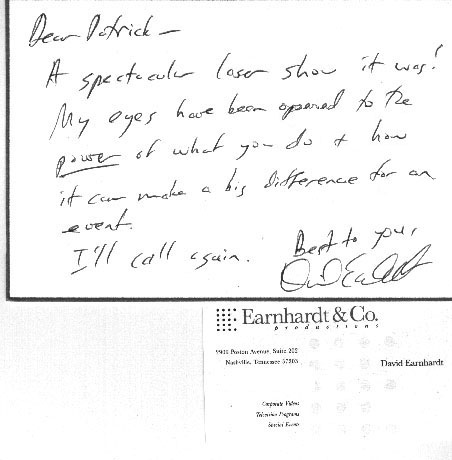 Dear Patrick —
A spectacular laser show it was!
My eyes have been opened to the
power of what you do + how
it can make a big difference for an
event.
I'll call again.
Best to you,
Earnhardt & Co.
productions
Poston Avenue, Suite 202
Nashville, Tennessee 37203
David Earnhardt
Corporate Videos
Television Programs
Special Events